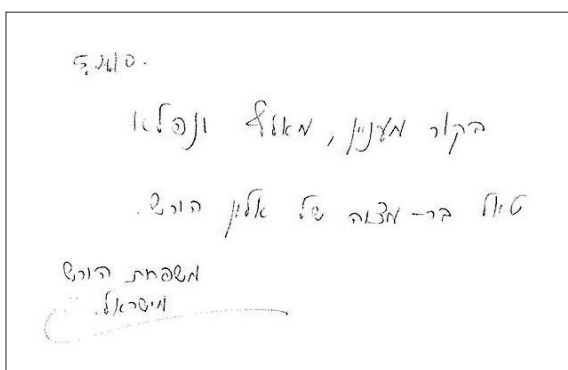 בקור מענין, מאלף ונפלא
טיול בר-מצוה של אלין הורש.
משפחת הורש
מישראל.